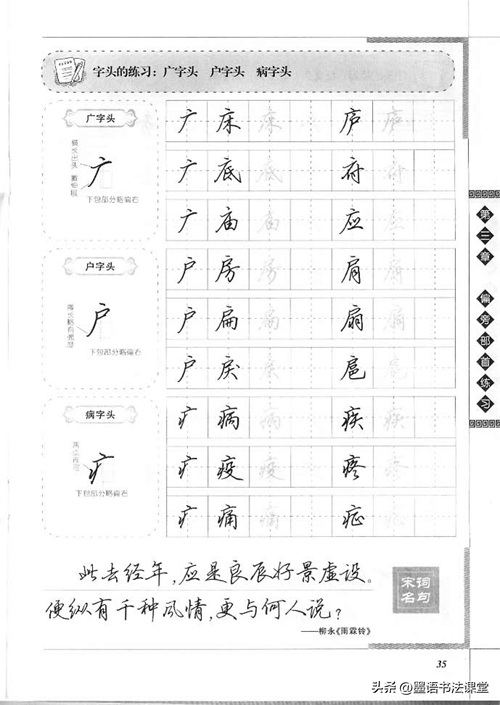 字头的练习：广字头 户字头 病字头
广字头
广
下包部分略偏右
广 床 床 庐 庐
广 底 底 府 府
广 庙 庙 应 应
户字头
户
下包部分略偏右
户 房 房 肩 肩
户 扁 扁 扇 扇
户 戾 戾 扈
病字头
疒
下包部分略偏右
疒 病 病 疾 疾
疒 疫 疫 疼 疼
疒 痛 痛 症 症
此去经年，应是良辰好景虚设。
便纵有千种风情，更与何人说？
——柳永《雨霖铃》
宋词
名句
第三章 偏旁部首练习
35
头条 @墨语书法课堂